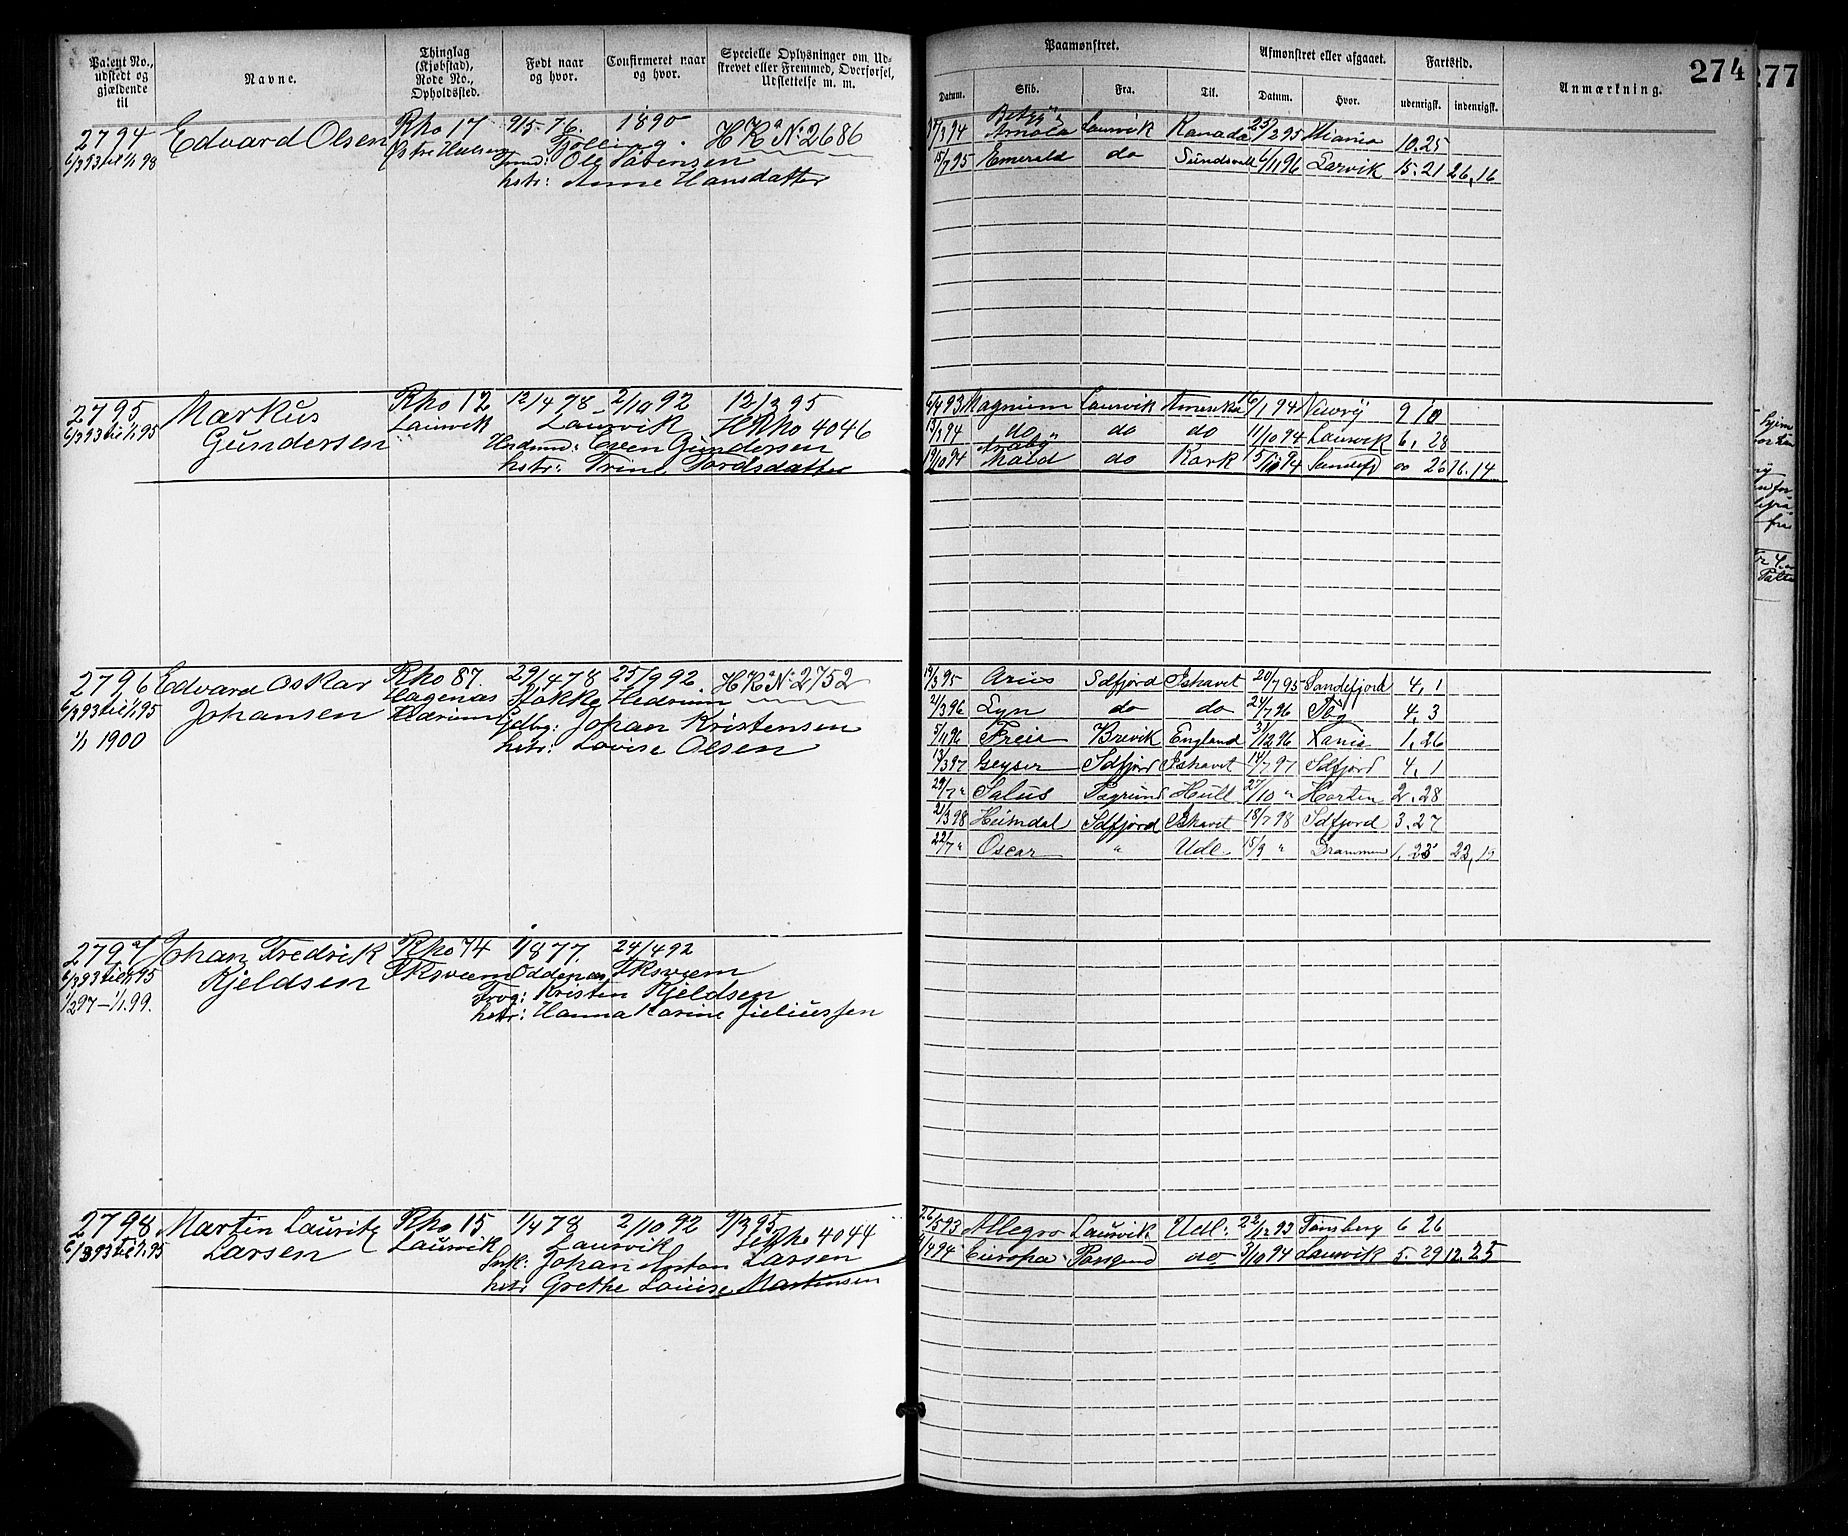 Patent No., udstedt og gjældende til
Navne.
Thinglag (Kjøbstad), Rode No., Opholdssted.
Født naar og hvor.
Confirmeret naar og hvor.
Specielle Oplysninger om Udskrevet eller Fremmed, Overførsel, Udslettelse m. m.
Paamønstret.
Datum. Skib. Fra. Til.
Afmønstret eller afgaaet.
Datum. Hvor.
Fartstid.
udenrigsk. indenrigsk.
Anmærkning.
274
277
2794 Edvard Olsen Rno 17 9/5 76. 1890 H R No 2686
6/3 93 til 1/1 98 Fjölling.
Ole Sörensen
hstr: Anne Hansdatter
17/3 94 Arnola Laurvik Kanada 2/3 95 10.25
15/7 95 Emerald do Sundsvall 6/11 96 Larvik 15.21 26.16
2795 Markus Rno 12 12/4 78 2/10 92 12/3 95
6/3 93 til 1/1 95 Gundersen Laurvik Laurvik HRno 4046
Husmd: Even Gundersen
hstr: Trine Tordsdatter
6/4 93 Magnum Laurvik Amerika 16/1 94 Newry 9 10
13/3 94 do do do 11/10 94 Laurvik 6. 28
19/10 94 do Kark Sandefj 26 26.14
2796 Edvard Oskar Rno 87. 29/4 78 25/9 92. H R No 2752
6/3 93 til 1/1 95 Johansen Hagenæs Stokke Hedrum
1/1 1900 Hedrum Gdbg: Johan Kristensen
hstr: Lovise Olsen
19/3 95 Aries Sdfjord Ishavet 20/7 95 Sandefjord 4, 1
2/3 96 Lyn do do 24/7 96 4, 3
5/11 96 Freia Brevik England 31/12 96 Xania 1, 26
13/3 97 Geyser Sdfjord Ishavet 14/7 97 Sdfjord 4, 1
29/7 " Salus Hull 27/10 " Horten 2.28
21/3 98 Heimdal Sdfjord Ishavet 18/7 98 Sdfjord 3.27
22/7 " Oscar " Udl. 15/9 " Drammen 1,23
2797 Johan Fredrik Rno 74 1/8 77. 24/4 92
6/3 93 til 1/1 95 Kjeldsen Oddenæs
1/2 97 – 1/1 99. Kristen Kjeldsen
hstr: Hanna Karine Juliussen
2798 Martin Lauritz Rno 15 1/4 78 2/10 92 9/3 95
6/3 93 til 1/1 95 Larsen Laurvik Laurvik 4044
Johan Anton Larsen
hstr Grethe Louise Martinsen
26/5 93 Allegro Laurvik Udl. 22/12 93 Tønsberg 6 26
9/4 94 Europa do 3/10 94 Laurvik 5. 29 12.25